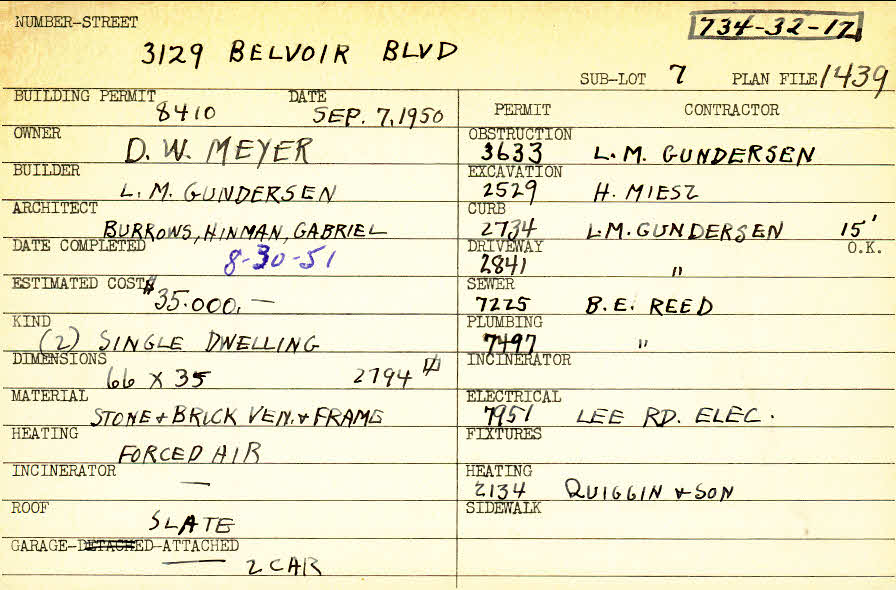 NUMBER-STREET
734-32-17
3129 BELVOIR BLVD
SUB-LOT 7 PLAN FILE 1439
BUILDING PERMIT DATE
8410 SEP. 7, 1950
OWNER
D. W. MEYER
BUILDER
L. M. GUNDERSEN
ARCHITECT
BURROWS, HINMAN, GABRIEL
DATE COMPLETED
8-30-51
ESTIMATED COST
$35.000. —
KIND
(2) SINGLE DWELLING
DIMENSIONS
66 X 35 2794
MATERIAL
STONE & BRICK VEN. & FRAME
HEATING
FORCED AIR
INCINERATOR
—
ROOF
SLATE
GARAGE-DETACHED-ATTACHED
2 CAR
PERMIT CONTRACTOR
OBSTRUCTION
3633 L. M. GUNDERSEN
EXCAVATION
2529 H. MIESZ
CURB
2734 L.M. GUNDERSEN 15'
DRIVEWAY O.K.
2841 "
SEWER
7225 B. E. REED
PLUMBING
7497 "
INCINERATOR
ELECTRICAL
7951 LEE RD. ELEC.
FIXTURES
HEATING
2134 QUIGGIN & SON
SIDEWALK